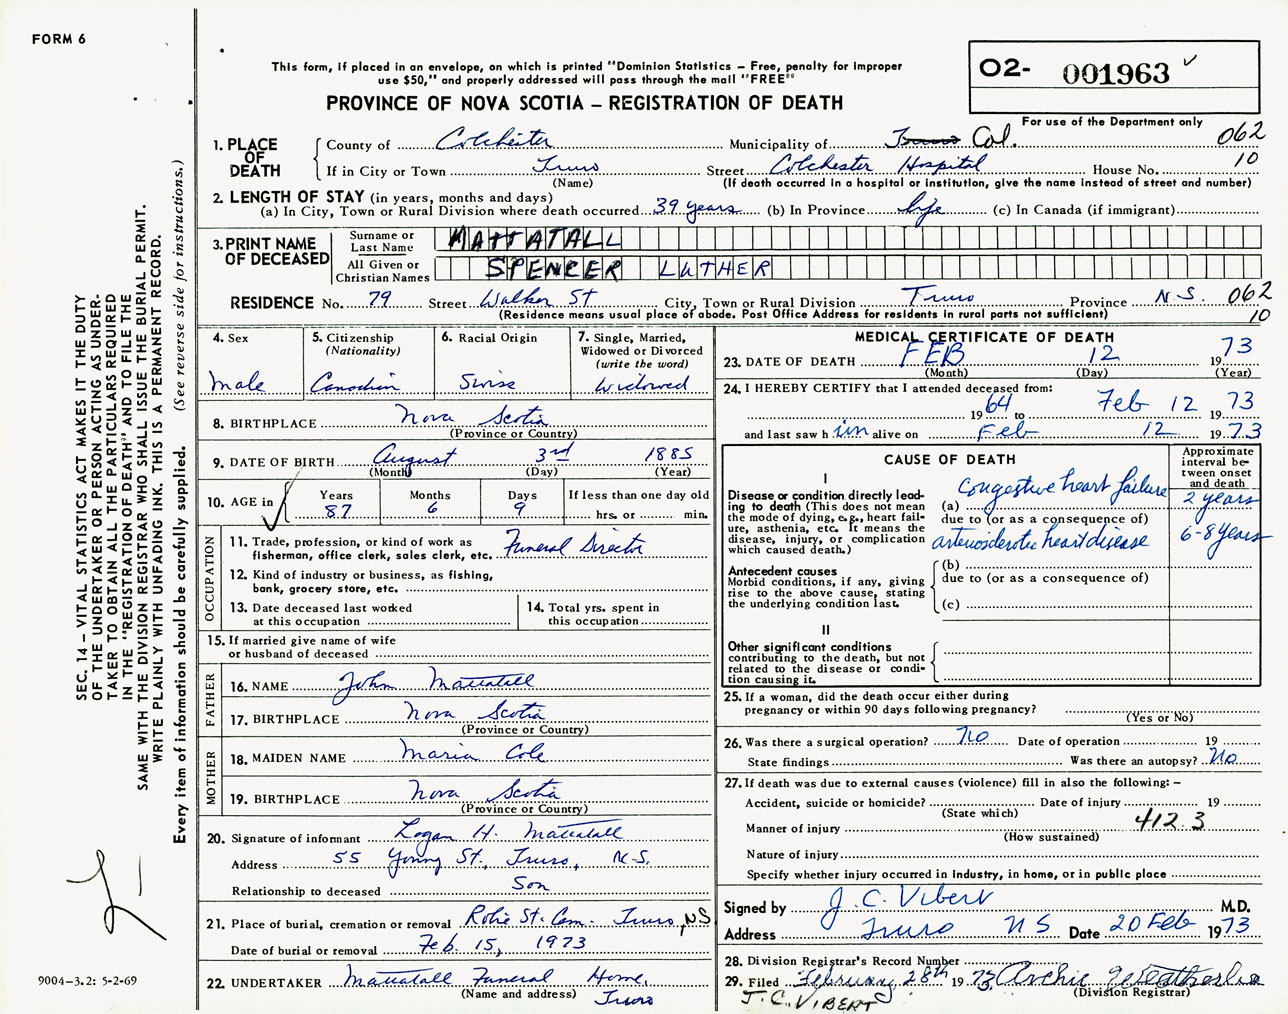 FORM 6
This form, if placed in an envelope, on which is printed "Dominion Statistics – Free, penalty for improper
use $50," and properly addressed will pass through the mail "FREE"
PROVINCE OF NOVA SCOTIA – REGISTRATION OF DEATH
O2- 001963
For use of the Department only
1. PLACE OF DEATH
County of Colchester Municipality of Truro Col. 062
If in City or Town Truro Street Colchester Hospital House No. 10
(Name) (If death occurred in a hospital or institution, give the name instead of street and number)
2. LENGTH OF STAY (in years, months and days)
(a) In City, Town or Rural Division where death occurred 39 years (b) In Province life (c) In Canada (if immigrant)
3. PRINT NAME OF DECEASED
Surname or Last Name MATTATALL
All Given or Christian Names SPENCER LUTHER
RESIDENCE No. 79 Street Walker St City, Town or Rural Division Truro Province N.S. 062
(Residence means usual place of abode. Post Office Address for residents in rural parts not sufficient) 10
4. Sex
male
5. Citizenship
(Nationality)
Canadian
6. Racial Origin
Swiss
7. Single, Married,
Widowed or Divorced
(write the word)
Widowed
8. BIRTHPLACE Nova Scotia
(Province or Country)
9. DATE OF BIRTH August 3rd 1885
(Month) (Day) (Year)
10. AGE in Years 87 Months 6 Days 9 If less than one day old
hrs. or min.
OCCUPATION
11. Trade, profession, or kind of work as
fisherman, office clerk, sales clerk, etc. Funeral Director
12. Kind of industry or business, as fishing,
bank, grocery store, etc.
13. Date deceased last worked
at this occupation
14. Total yrs. spent in
this occupation
15. If married give name of wife
or husband of deceased
FATHER
16. NAME John Mattatall
17. BIRTHPLACE Nova Scotia
(Province or Country)
MOTHER
18. MAIDEN NAME Maria Cole
19. BIRTHPLACE Nova Scotia
(Province or Country)
20. Signature of informant Logan H. Mattatall
Address 55 Young St., Truro, N.S.
Relationship to deceased Son
21. Place of burial, cremation or removal Robie St. Cem. Truro, NS
Date of burial or removal Feb. 15, 1973
22. UNDERTAKER Mattatall Funeral Home,
(Name and address) Truro
MEDICAL CERTIFICATE OF DEATH
23. DATE OF DEATH FEB 12 1973
(Month) (Day) (Year)
24. I HEREBY CERTIFY that I attended deceased from:
1964 to Feb 12 1973
and last saw him alive on Feb 12 1973
CAUSE OF DEATH
Approximate
interval be-
tween onset
and death
I
Disease or condition directly lead-
ing to death (This does not
mean the mode of dying, e.g., heart fail-
ure, asthenia, etc. It means the
disease, injury, or complication
which caused death.)
(a) Congestive heart failure 2 years
due to (or as a consequence of)
arteriosclerotic heart disease 6-8 years
Antecedent causes
Morbid conditions, if any, giving
rise to the above cause, stating
the underlying condition last.
(b)
due to (or as a consequence of)
(c)
II
Other significant conditions
contributing to the death, but not
related to the disease or condi-
tion causing it.
25. If a woman, did the death occur either during
pregnancy or within 90 days following pregnancy?
(Yes or No)
26. Was there a surgical operation? No Date of operation 19
State findings Was there an autopsy? No
27. If death was due to external causes (violence) fill in also the following: –
Accident, suicide or homicide? Date of injury 19
(State which)
Manner of injury 412.3
(How sustained)
Nature of injury
Specify whether injury occurred in industry, in home, or in public place
Signed by J. C. Vibert M.D.
Address Truro NS Date 20 Feb 1973
28. Division Registrar's Record Number
29. Filed February 28th 1973 Archie
(Division Registrar)
J.C. VIBERT
SEC. 14 – VITAL STATISTICS ACT MAKES IT THE DUTY
OF THE UNDERTAKER OR PERSON ACTING AS UNDER-
TAKER TO OBTAIN ALL THE PARTICULARS REQUIRED
IN THE "REGISTRATION OF DEATH" AND TO FILE THE
SAME WITH THE DIVISION REGISTRAR WHO SHALL ISSUE THE BURIAL PERMIT.
WRITE PLAINLY WITH UNFADING INK. THIS IS A PERMANENT RECORD.
Every item of information should be carefully supplied. (See reverse side for instructions.)
9004-3.2: 5-2-69